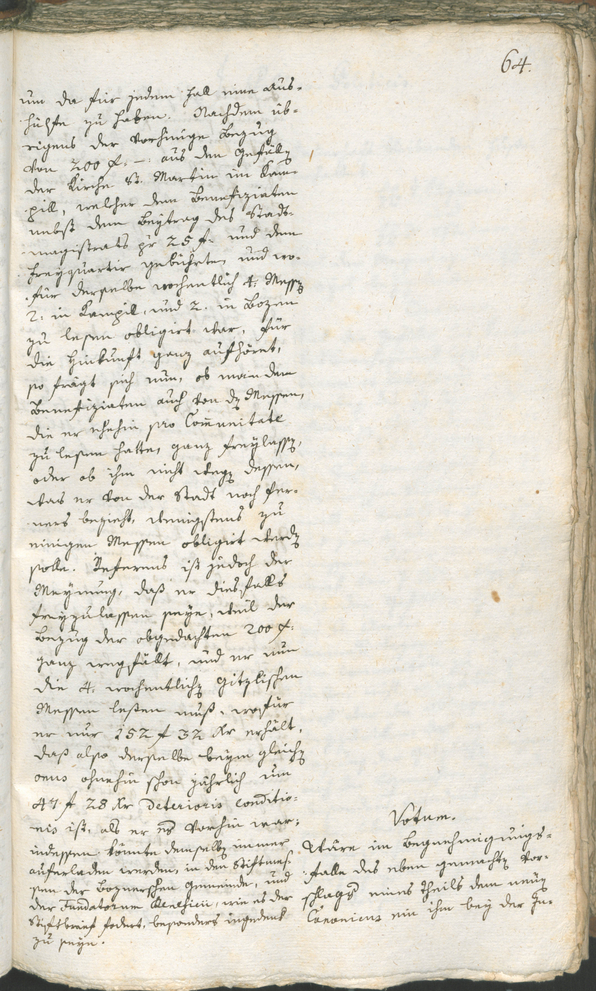 64.
um da für jedem fall eine Aus-
hülfe zu haben. Nachdem üb-
rigens der vorhinige Bezug
von 200 f. –. aus den Gefällen
der Kirche St. Martin im Kam-
pill, welcher dem Benefiziaten
nebst dem Beytrag des Stadt-
magistrats pr 25 f. und dem
freyquartir gebührten, und wo-
für derselbe wochentlich 4. Messen
2. in Kampill, und 2. in Bozen
zu lesen obligirt war, für
die Hinkunft ganz aufhöret,
so frägt sich nun, ob man dem
Benefiziaten auch von den Messen,
die er ehehin pro Comunitate
zu lesen hatte, ganz freylassen,
oder ob ihm nicht wegen dessen,
was er von der Stadt noch fer-
ners bezieht, wenigstens zu
einigen Messen obligirt werden
solle. Referens ist jedoch der
Meynung, daß er diesfalls
freyzulassen seye, weil der
Bezug der obgedachten 200 f.
ganz wegfällt, und er nun
die 4. wochentlichen Gitzlischen
Messen lesen muß, wofür
er nur 152 f 32 Xr erhält,
daß also derselbe beym gleichen
onus ohnehin schon jährlich um
47 f 28 Xr deterioris conditio-
nis ist, als er es vorhin war;
indessen könnte denselben immer
auferladen werden, in den Stiftmes-
sen der Boznerischen Gemeinde, und
der Fundatorum, wie es der
Stiftbrief fodert, besonders ingedenk
zu seyn.
Votum.
Wäre im Begnehmigungs-
falle des eben gemachten Vor-
schlags eines theils dem neuen
Canonicus ein ihm bey der In-